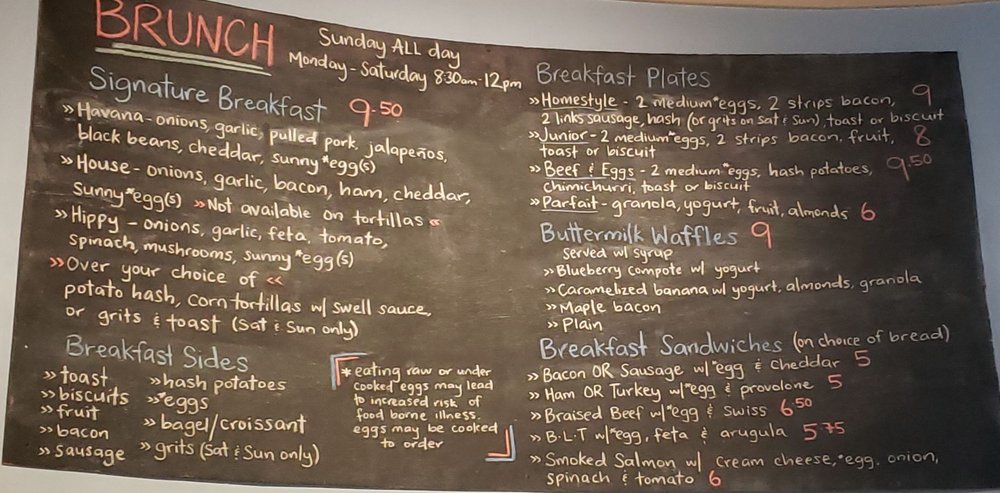 BRUNCH
Sunday ALL day
Monday - Saturday 8:30am - 12pm
Signature Breakfast 9.50
» Havana - onions, garlic, pulled pork, jalapeños,
black beans, cheddar, sunny *egg(s)
» House - onions, garlic, bacon, ham, cheddar,
Sunny *egg(s) » Not available on tortillas «
» Hippy - onions, garlic, feta, tomato,
spinach, mushrooms, sunny *egg(s)
» Over your choice of «
potato hash, corn tortillas w/ swell sauce,
or grits & toast (Sat & Sun only)
Breakfast Sides
» toast
» biscuits
» fruit
» bacon
» sausage
» hash potatoes
» *eggs
» bagel/croissant
» grits (Sat & Sun only)
* eating raw or under
cooked eggs may lead
to increased risk of
food borne illness.
eggs may be cooked
to order
Breakfast Plates
» Homestyle - 2 medium *eggs, 2 strips bacon, 9
2 links sausage, hash (or grits on Sat & Sun), toast or biscuit
» Junior - 2 medium *eggs, 2 strips bacon, fruit, 8
toast or biscuit
» Beef & Eggs - 2 medium *eggs, hash potatoes, 9.50
chimichurri, toast or biscuit
» Parfait - granola, yogurt, fruit, almonds 6
Buttermilk Waffles 9
served w/ syrup
» Blueberry compote w/ yogurt
» Caramelized banana w/ yogurt, almonds, granola
» Maple bacon
» Plain
Breakfast Sandwiches (on choice of bread)
» Bacon OR Sausage w/ *egg & cheddar 5
» Ham OR Turkey w/ *egg & provolone 5
» Braised Beef w/ *egg & swiss 6.50
» B.L.T w/ *egg, feta & arugula 5.75
» Smoked Salmon w/ cream cheese, *egg, onion,
spinach & tomato 6